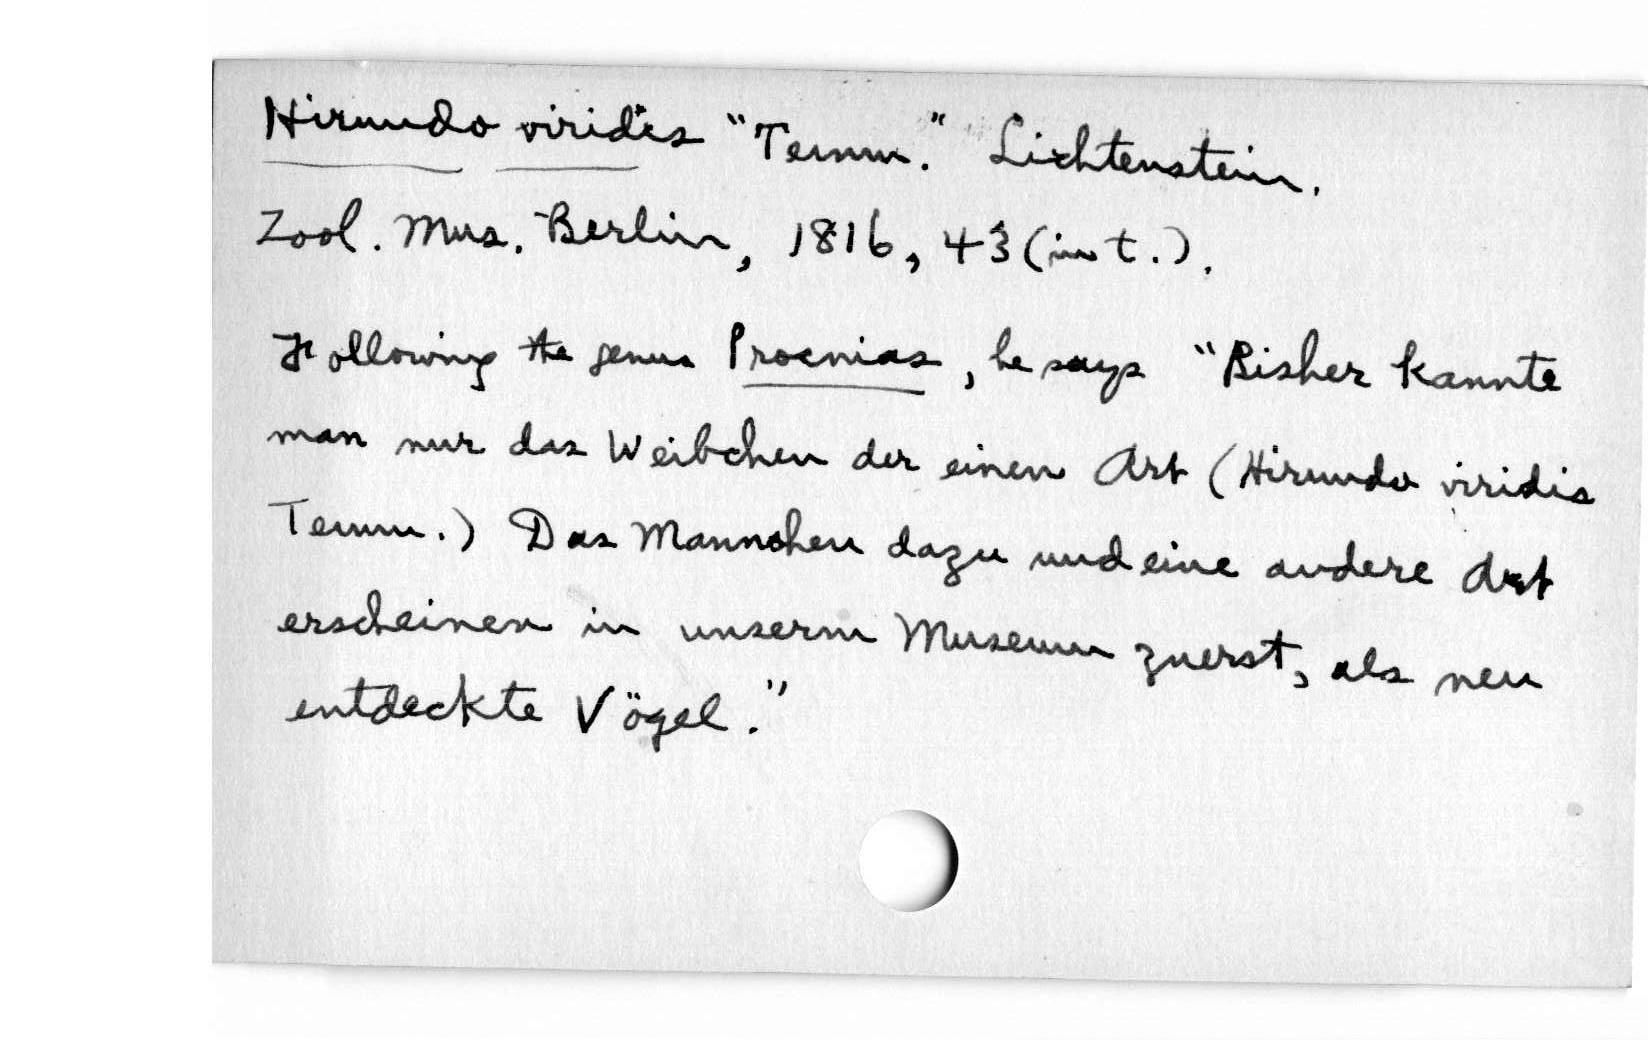 Hirundo viridis "Temm." Lichtenstein.
Zool. Mus. Berlin, 1816, 43 (in t.).
Following the genus Procnias, he says "Bisher kannte
man nur das Weibchen der einen Art (Hirundo viridis
Temm.) Das Mannchen dazu und eine andere Art
erscheinen in unserm Museum zuerst, als neu
entdeckte Vögel."